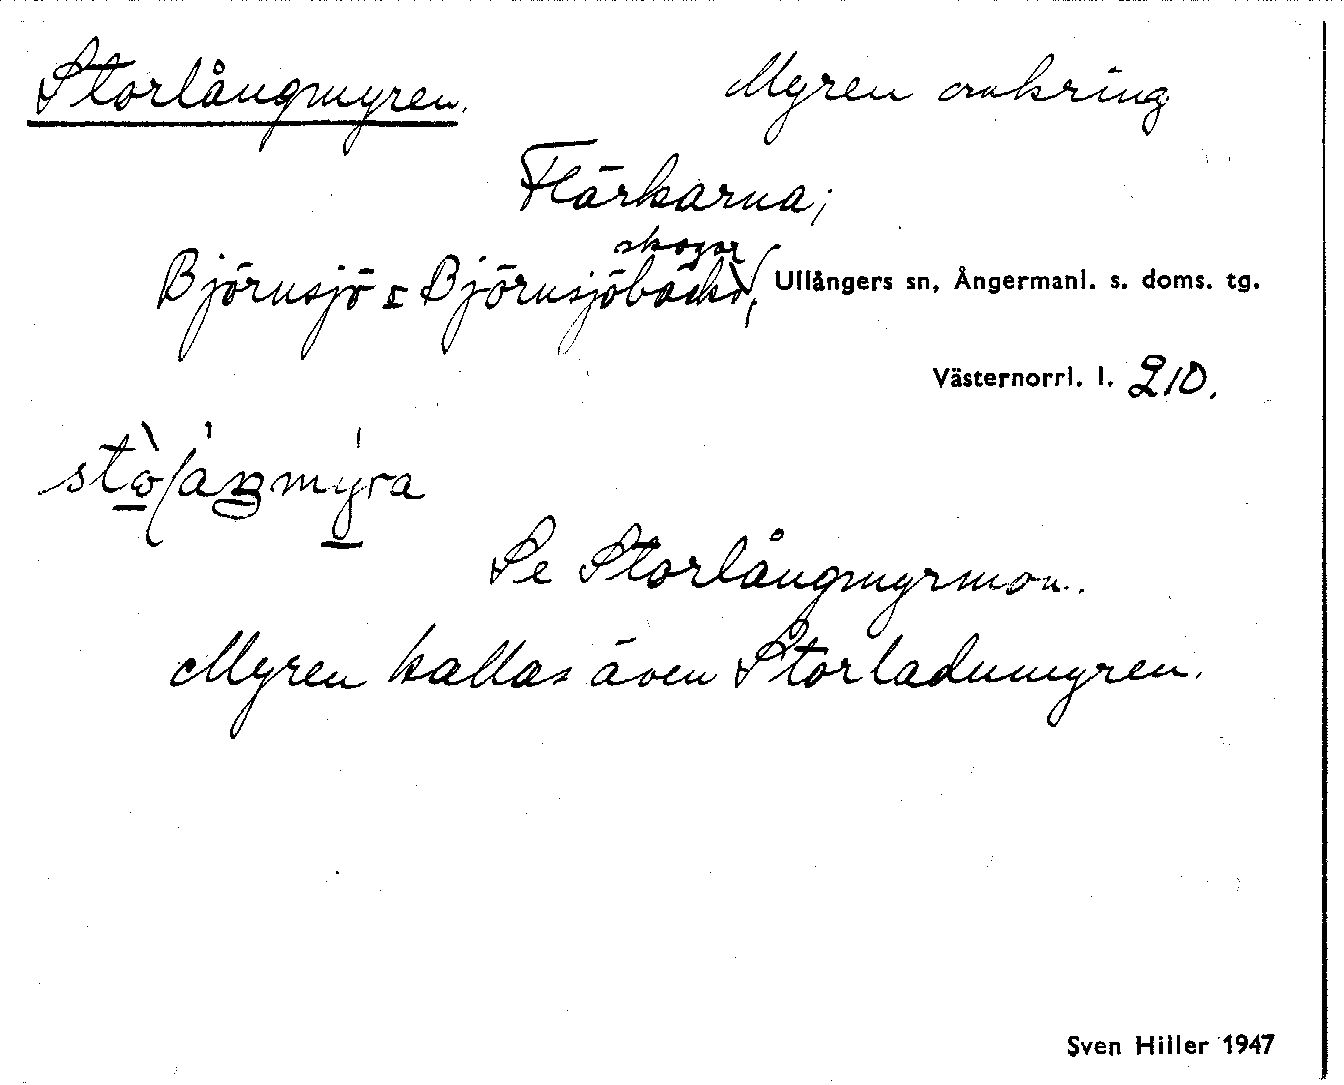 Storlångmyren. Myren omkring
Flärkarna;
skogar
Björnsjö o Björnsjöbäcks, Ullångers sn, Ångermanl. s. doms. tg.
Västernorrl. l. 210.
Se Storlångmyrmon.
Myren kallas även Storladumyren.
Sven Hiller 1947